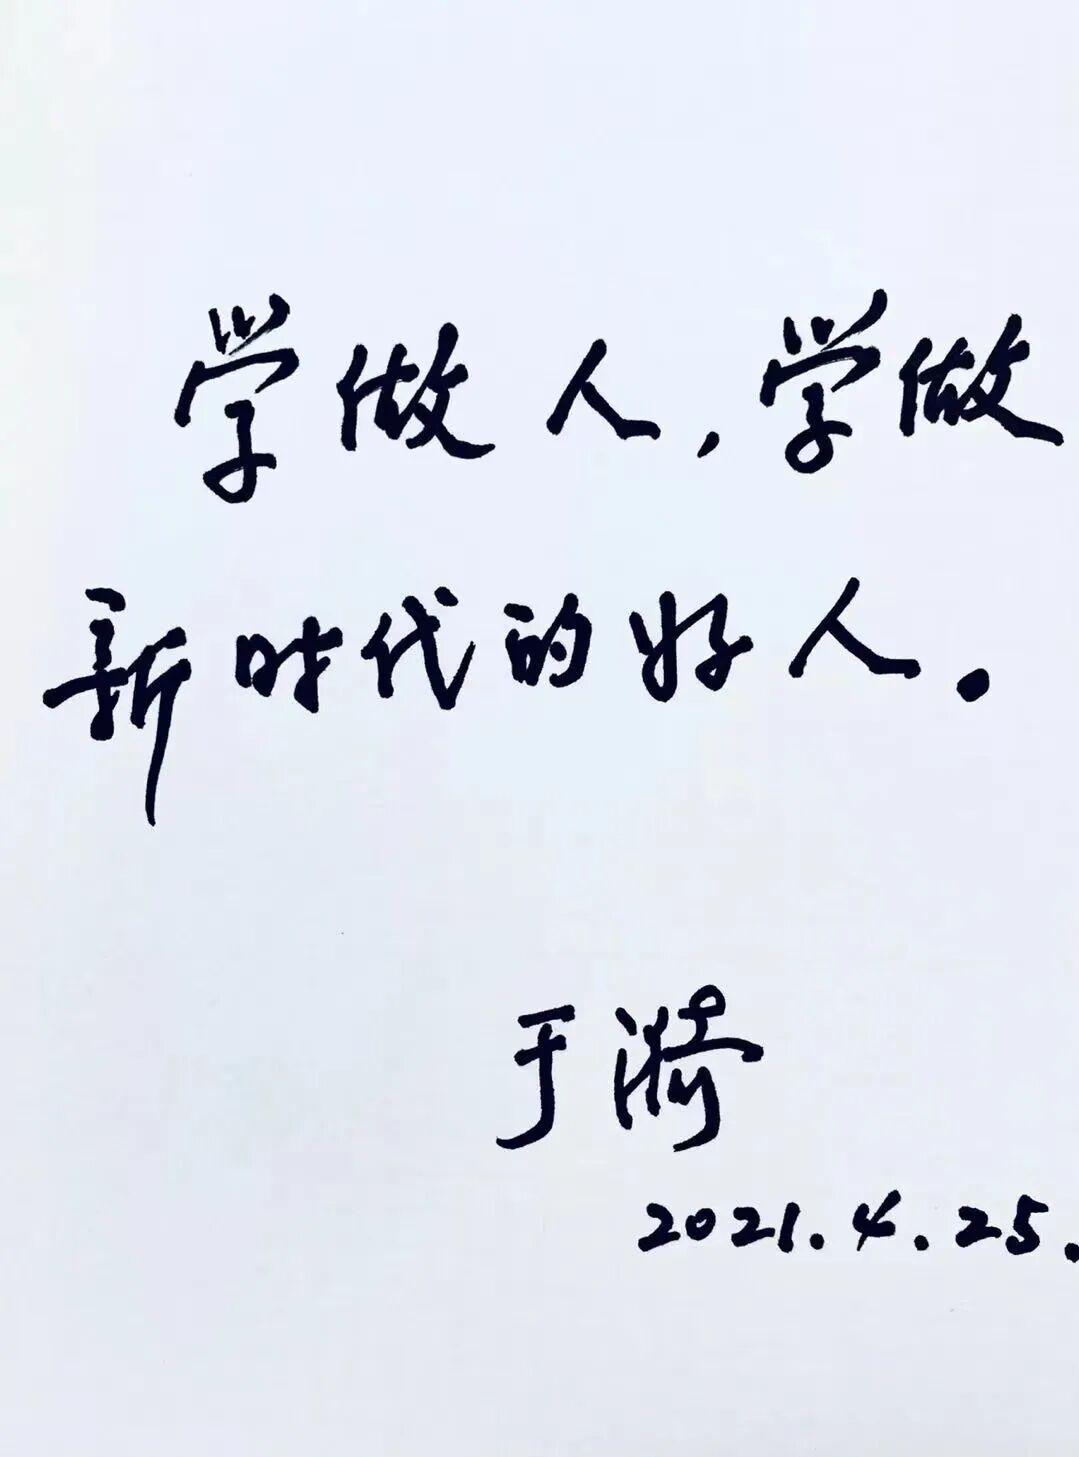 学做人,学做
新时代的好人.
于漪
2021.4.25.